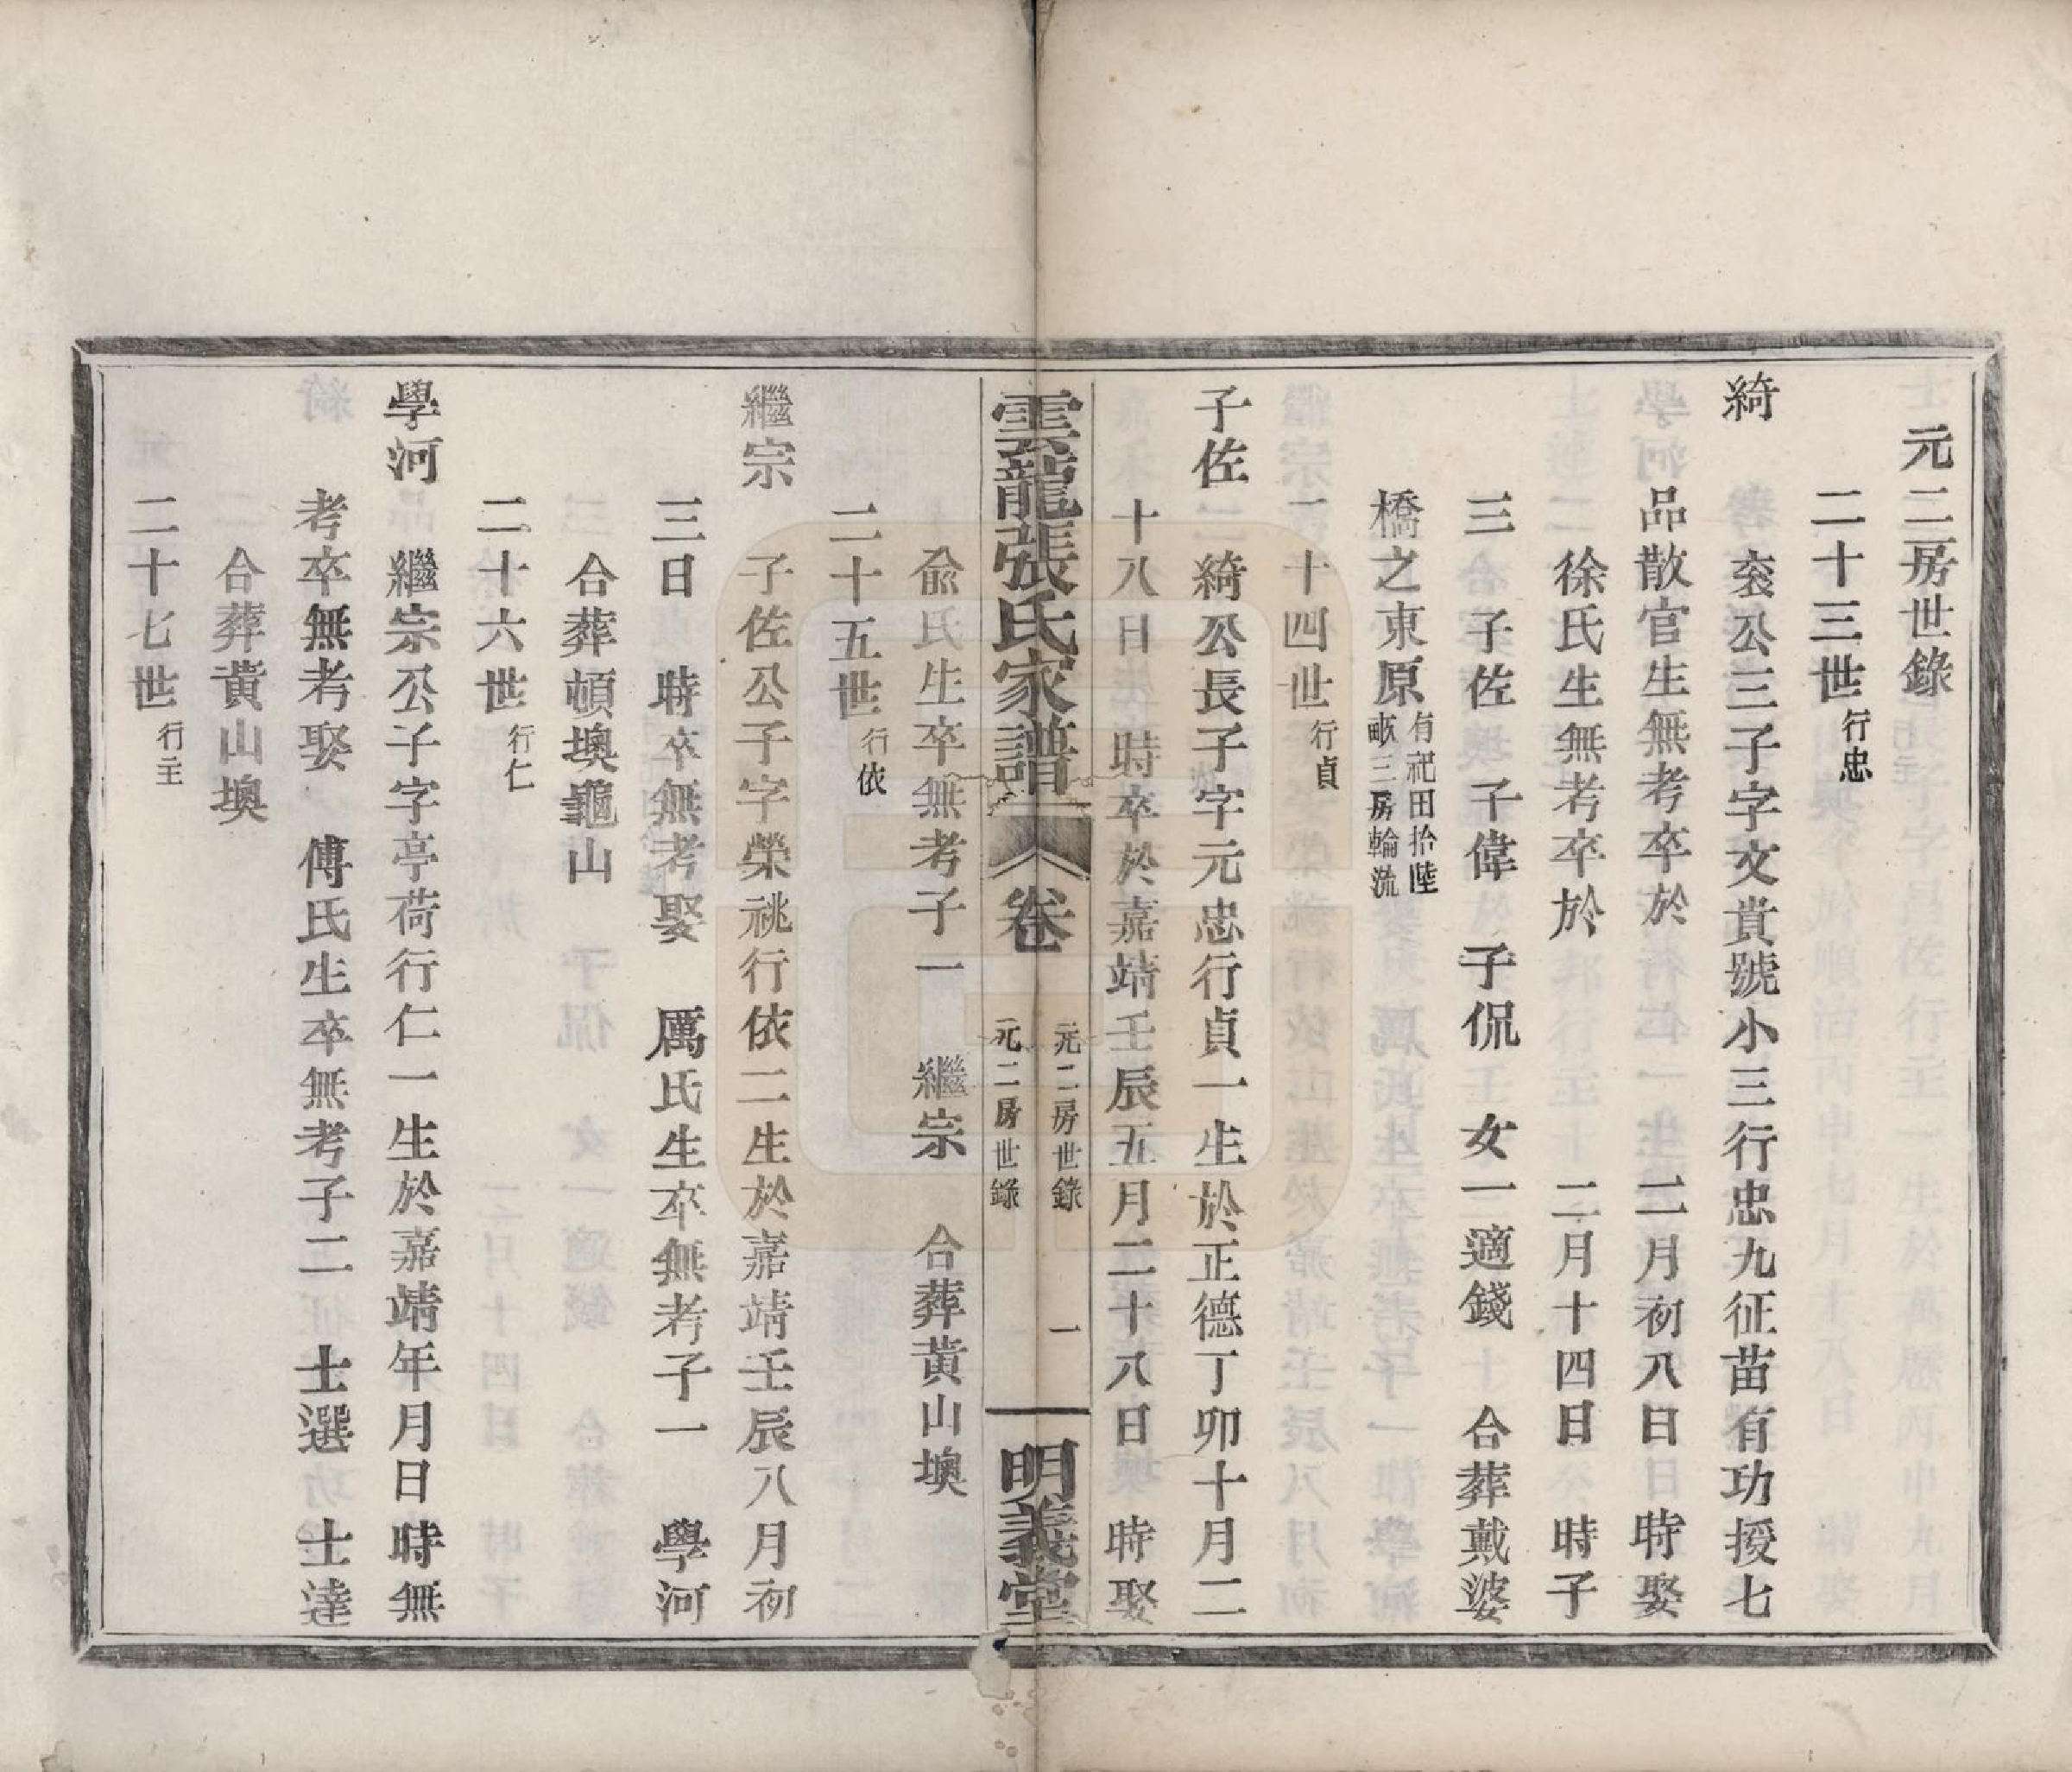 元二房世錄
二十三世行忠
綺　袞公三子字文貴號小三行忠九征苗有功授七
品散官生無考卒於　二月初八日　時娶
徐氏生無考卒於　二月十四日　時子
三　子佐　子偉　子侃　女一適錢　合葬戴婆
橋之東原有祀田拾陸畝三房輪流
二十四世行貞
子佐　綺公長子字元忠行貞一生於正德丁卯十月二
十八日　時卒於嘉靖壬辰五月二十八日　時娶
俞氏生卒無考子一　繼宗　合葬黃山墺
雲龍張氏家譜
卷
元二房世錄
元二房世錄
一
明義堂
二十五世行依
繼宗　子佐公子字榮祧行依二生於嘉靖壬辰八月初
三日　時卒無考娶　厲氏生卒無考子一　學河
合葬頓墺龜山
二十六世行仁
學河　繼宗公子字亭荷行仁一生於嘉靖年月日時無
考卒無考娶　傅氏生卒無考子二　士選　士達
合葬黃山墺
二十七世行主